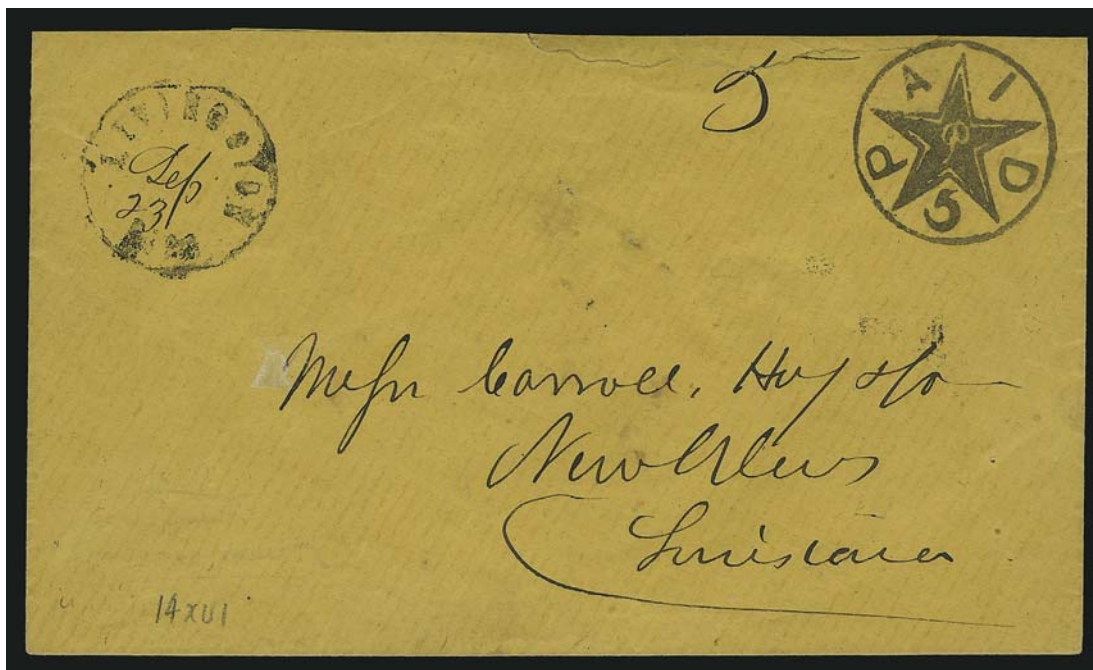 LIVINGSTON
Sep
23
5
PAID
5
Messr Carroll, Hoy & Co
New Orleans
Louisiana
14XU1